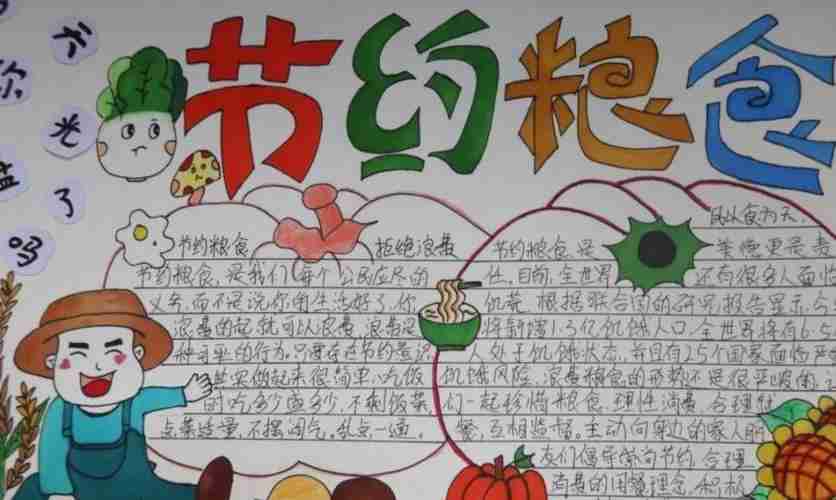 节约粮食
今天
你光
盘了
吗
节约粮食 拒绝浪费
节约粮食,是我们每个公民应尽的
义务,而不是说你的生活好了,你
浪费的起就可以浪费,浪费是
一种可耻的行为。只要存在节约意识
其实做起来很简单:吃饭
时吃多少盛多少,不剩饭菜
点菜适量,不摆阔气。乱点一通。
民以食为天,
节约粮食是 美德更是责
任。目前,全世界 还有很多人面临
饥荒。根据联合国的研究报告显示,今
将新增1.3亿饥饿人口,全世界将有6.5
人处于饥饿状态,并且有25个国家面临严
饥饿风险,浪费粮食的形势还是很严峻的。
们一起珍惜粮食、理性消费、合理
餐,互相监督。主动向身边的家人朋
友们倡导崇尚节约 合理
消费的用餐理念,积极